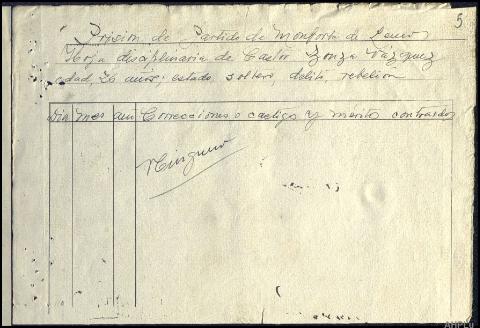 5
Prision de Partido de Monforte de Lemos
Hoja disciplinaria de Castor Gonza Vázquez
edad, 26 anos; estado, soltero, delito, rebelion
Dia mes ano Correcciones o castigos y méritos contraidos
Ninguno